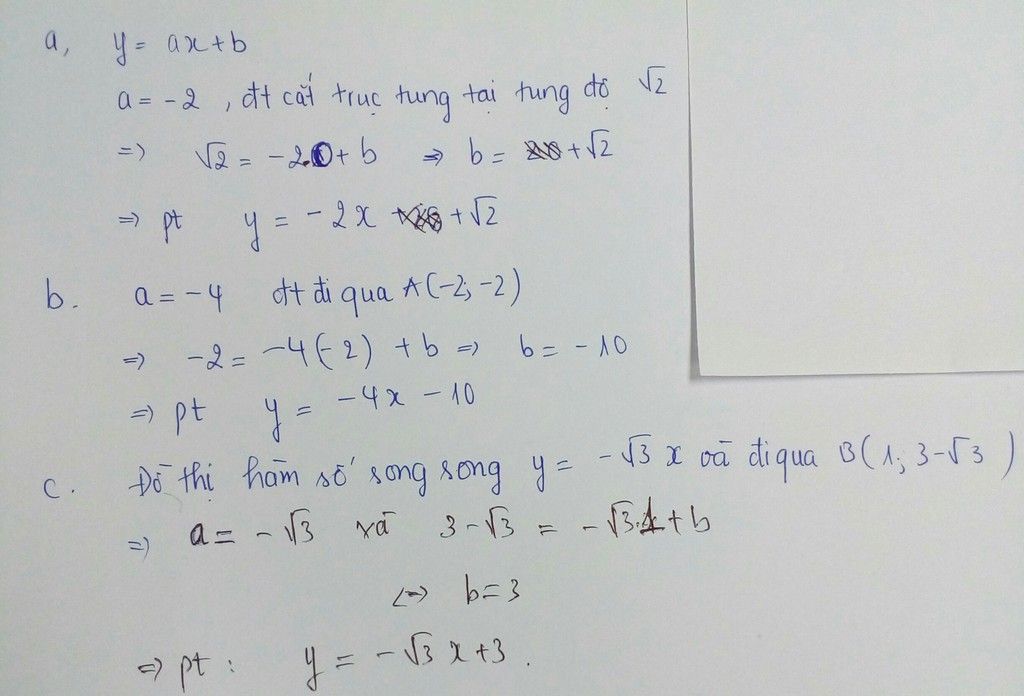 a, y = ax + b
a = -2 , đt cắt trục tung tại tung độ √2
=> √2 = -2.0 + b => b = +√2
=> pt y = -2x +√2
b. a = -4 đt đi qua A(-2; -2)
=> -2 = -4(-2) + b => b = -10
=> pt y = -4x - 10
c. Đồ thị hàm số song song y = -√3 x và đi qua B(1; 3-√3)
=> a = -√3 và 3 - √3 = -√3.1 + b
<=> b = 3
=> pt : y = -√3 x + 3.